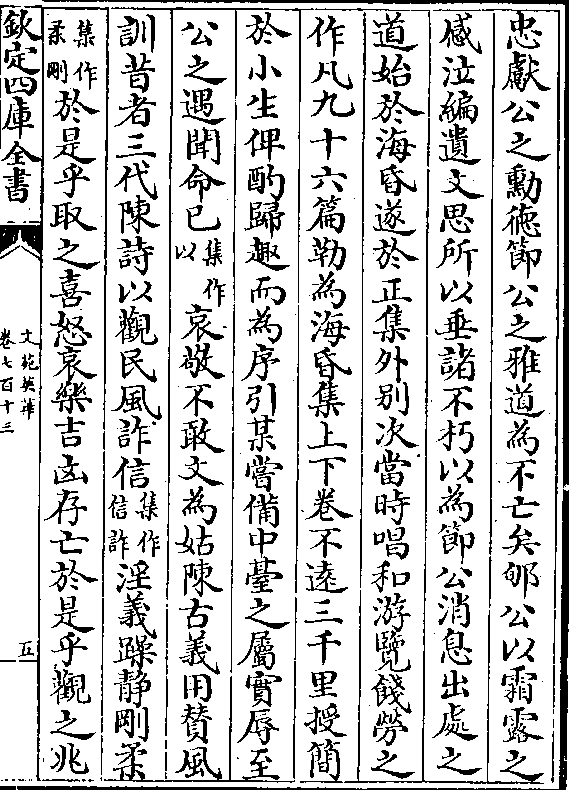 忠獻公之勳徳節公之雅道為不亡矣邠公以霜露之
感泣編遺文思所以垂諸不朽以為節公消息出處之
道始於海昏遂於正集外别次當時唱和游覽餞勞之
作凡九十六篇勒為海昏集上下卷不遠三千里授簡
於小生俾酌歸趣而為序引某嘗備中臺之屬實辱至
公之遇聞命已集作以哀敬不敢文為姑陳古義用賛風
訓昔者三代陳詩以觀民風詐信集作信詐淫義躁静剛柔
集作柔剛於是乎取之喜怒哀樂吉凶存亡於是乎觀之兆
欽定四庫全書
文苑英華
卷七百十三
五